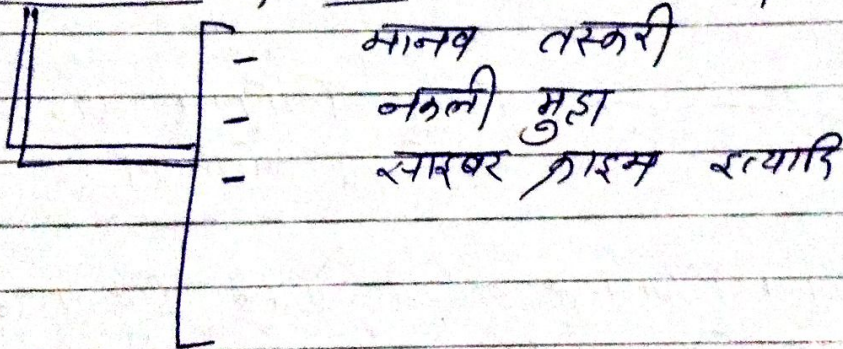 - मानव तस्करी
- नकली मुद्रा
- साइबर क्राइम इत्यादि